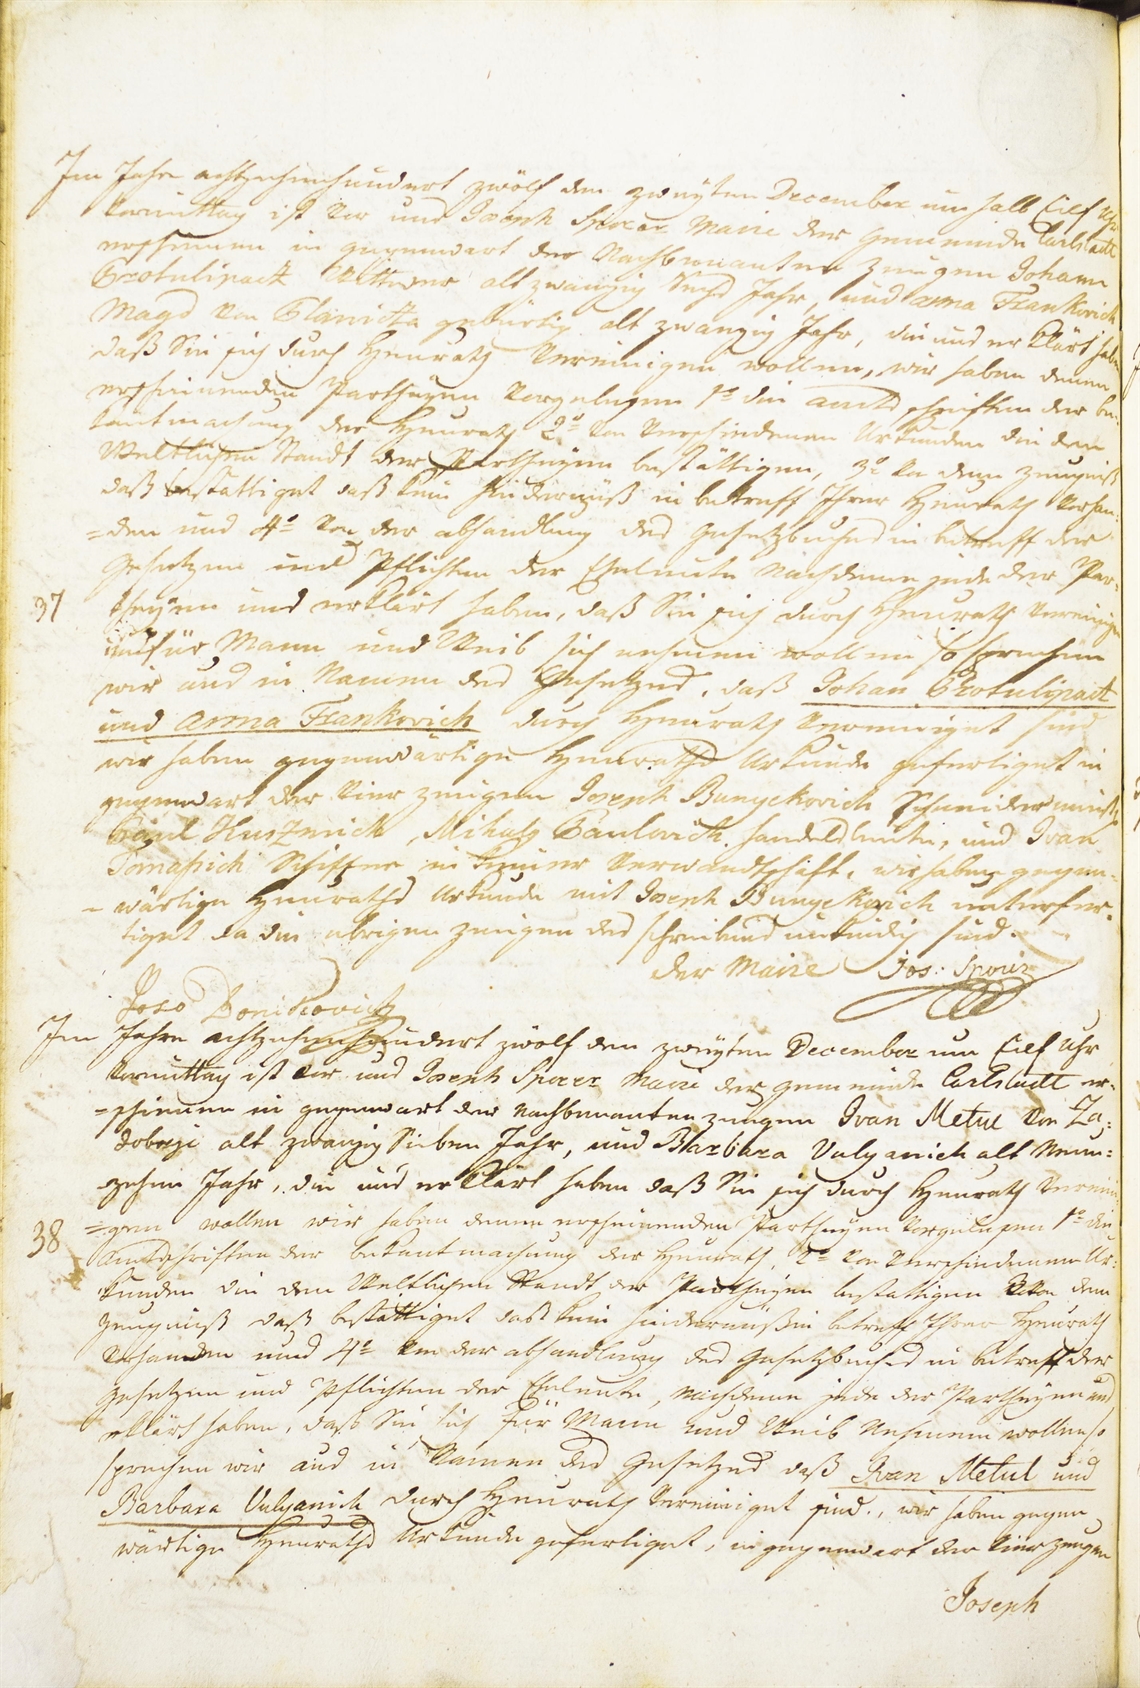 Im Jahre achtzehnhundert zwölf den zweyten December um halb Eilf Uhr
Vormittag ist vor uns Joseph Sporer Maire der Gemeinde Carlstadt
erschienen in gegenwart der Nachbenanten Zeugen Johann
alt zwanzig Sechs Jahr, und Anna Frankovich
Magd von gebürtig alt zwanzig Jahr, die uns erklärt haben
daß Sie sich durch Heurath Vereinigen wollen, wir haben denen
erscheinenden Partheyen Vorgelesen 1º die amts schriften der be-
kantmachung der Heurath 2º von Verschiedenen Urkunden die den
Weltlichen Standt der Partheyen bestättigen, 3º Von dem Zeugniß
daß bestättiget daß kein Hindernüß in betreff Ihrer Heurath Vorhan-
=den und 4º Von der abhandlung des Gesetzbuches in betreff der
Gesetzen und Pflichten der Eheleute Nachdeme jede der Par-
37 theyen uns erklärt haben, daß Sie sich durch Heurath Vereinigen
und für Mann und Weib sich nehmen wollen so sprechen
wir aus in Namen des Gesetzes, daß Johan
und Anna Frankovich durch Heurath Vereiniget sind
wir haben gegenwärtige Heuraths Urkunde gefertiget in
gegenwart der Vier Zeugen Joseph Bunyekovich Schneidermeister
Mihaly Paulovich handelsleute, und Ivan
Tomassich Schiffer in keiner Verwandtschaft, wir haben gegen-
-wärtige Heuraths Urkunde mit Joseph Bunyekovich unterfer-
tiget da die übrigen Zeugen des schreibens unkündig sind.
der Maire Jos: Sporer
Joso
Im Jahre achtzehnhundert zwölf den zweyten December um Eilf Uhr
Vormittag ist vor uns Joseph Sporer Maire der gemeinde Carlstadt er-
=schienen in gegenwart der Nachbenanten zeugen Ivan Metul von Za-
dobrje alt zwanzig Sieben Jahr, und Barbara Vulyanich alt Neun-
zehen Jahr, die uns erklärt haben daß Sie sich durch Heurath Verein
38 =gen wollen wir haben denen erscheinenden Partheyen Vorgelesen 1º die
Amtsschriften der bekantmachung der Heurath, 2º Von Verschiedenen Ur-
kunden die den Weltlichen Standt der Partheyen bestättigen 3 Von dem
Zeugniß daß bestättiget daß kein hindernüß in betreff Ihrer Heurath
Vorhanden und 4º Von der abhandlung des Gesetzbuches in betreff der
Gesetzen und Pflichten der Eheleute, nachdeme jede der Partheyen uns
erklärt haben, daß Sie sich für Mann und Weib Nehmen wollen so
sprechen wir aus in Namen des Gesetzes daß Ivan Metul und
Barbara Vulyanich durch Heurath Vereiniget sind, wir haben gegen
wärtige Heuraths Urkunde gefertiget, in gegenwart der Vier Zeugen
Joseph